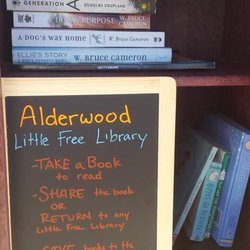 GENERATION A DOUGLAS COUPLAND
A DOG'S PURPOSE W. BRUCE CAMERON
A DOG'S WAY HOME W. Bruce Cameron
ELLIE'S STORY W. Bruce Cameron
Alderwood
Little Free Library
-TAKE a Book
to read
-SHARE the book
OR
RETURN to any
Little Free Library
books to the